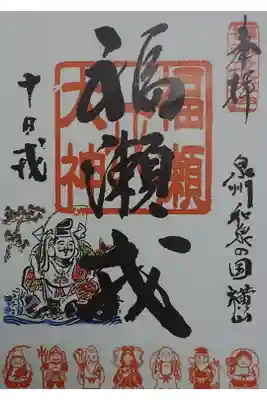 奉拝
泉州和泉の国 横山
福瀬戎
十日戎
大神